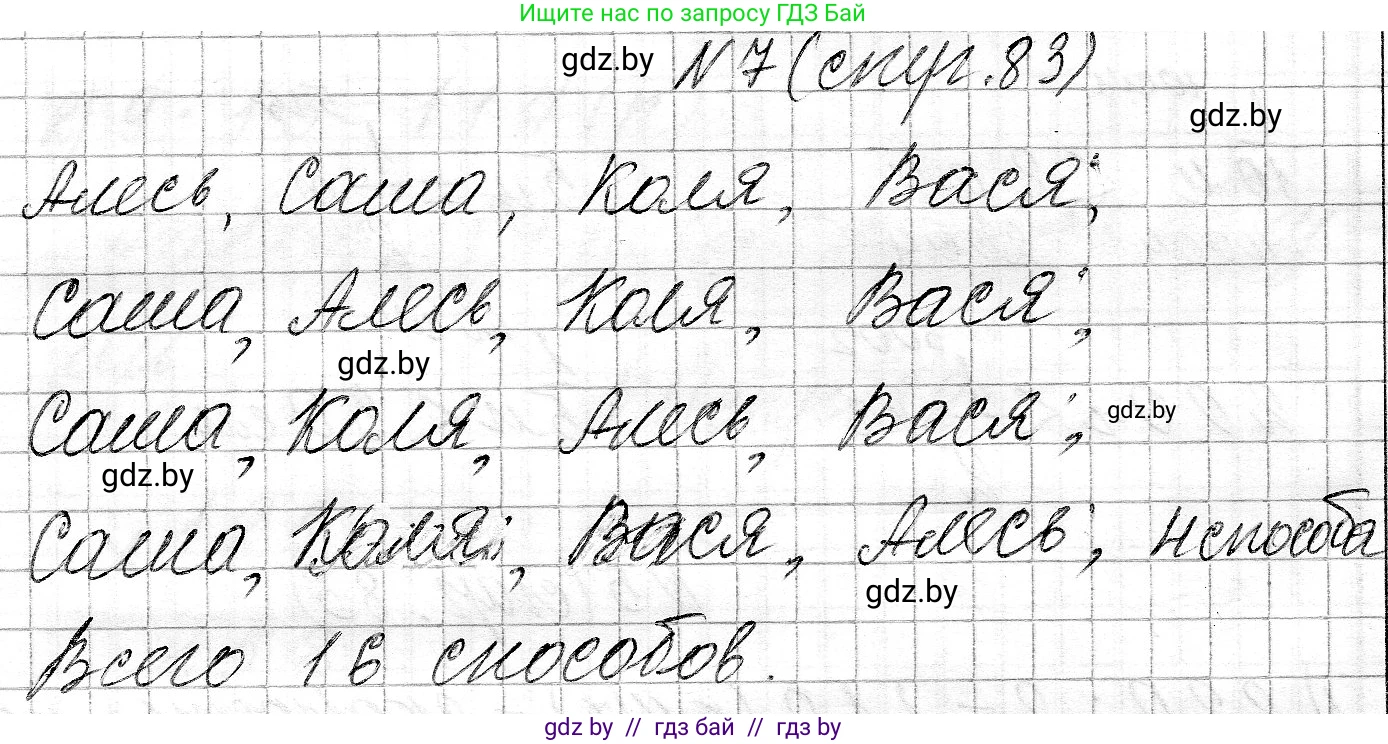 Ищите нас по запросу ГДЗ Бай
gdz.by N 7 (стр. 83)
gdz.by
Алесь, Саша, Коля, Вася;
Саша, Алесь, Коля, Вася;
gdz.by
Саша, Коля, Алесь, Вася; gdz.by
gdz.by
Саша, Коля, Вася, Алесь; 4 способа
gdz.by
Всего 16 способов.
gdz by // гдз бай // гдз by